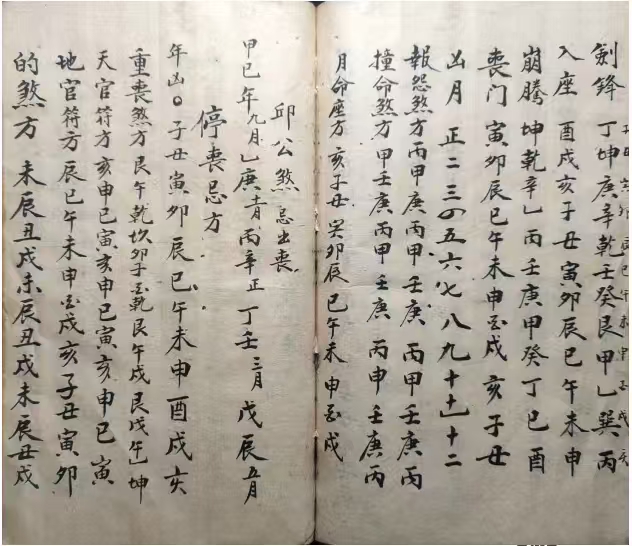 劍鋒 丁坤庚辛乾壬癸艮甲乙巽丙
入座 酉戌亥子丑寅卯辰巳午未申
崩騰 坤乾辛乙丙壬庚甲癸丁巳酉
喪门 寅卯辰巳午未申酉戌亥子丑
凶月 正二三四五六七八九十十一十二
報怨煞方 丙甲庚丙甲壬庚丙甲壬庚丙
撞命煞方 甲壬庚丙甲壬庚丙申壬庚丙
月命座方 亥子丑寅卯辰巳午未申酉戌
邱公煞 忌出喪
甲巳年九月乙庚十一月丙辛正丁壬三月戊辰五月
停喪忌方
年凶〇子丑寅卯辰巳午未申酉戌亥
重喪煞方 艮午乾坎卯子至乾艮午戌艮戊午乙坤
天官符方 亥申巳寅亥申巳寅亥申巳寅
地官符方 辰巳午未申酉戌亥子丑寅卯
的煞方 未辰丑戌未辰丑戌未辰丑戌